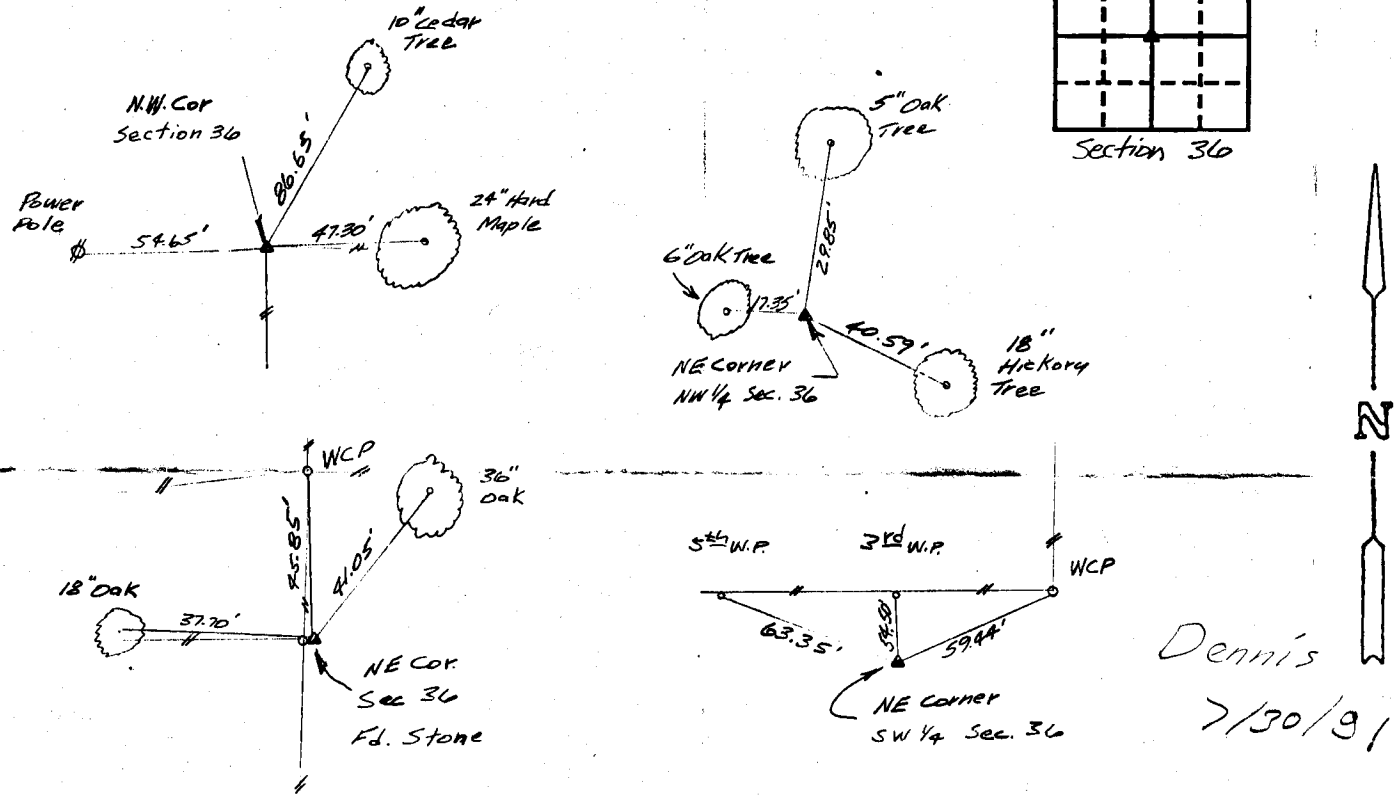 10" Cedar
Tree
N.W. Cor
Section 36
86.65'
Power
Pole
54.65'
47.30'
24" Hard
Maple
5" Oak
Tree
29.85'
6" Oak Tree
17.35'
40.59'
18"
Hickory
Tree
NE Corner
NW 1/4 Sec. 36
Section 36
N
WCP
36"
Oak
41.05'
18" Oak
37.70'
NE Cor.
Sec 36
Fd. Stone
5th W.P.
3rd W.P.
WCP
63.35'
59.44'
NE Corner
SW 1/4 Sec. 36
Dennis
7/30/91